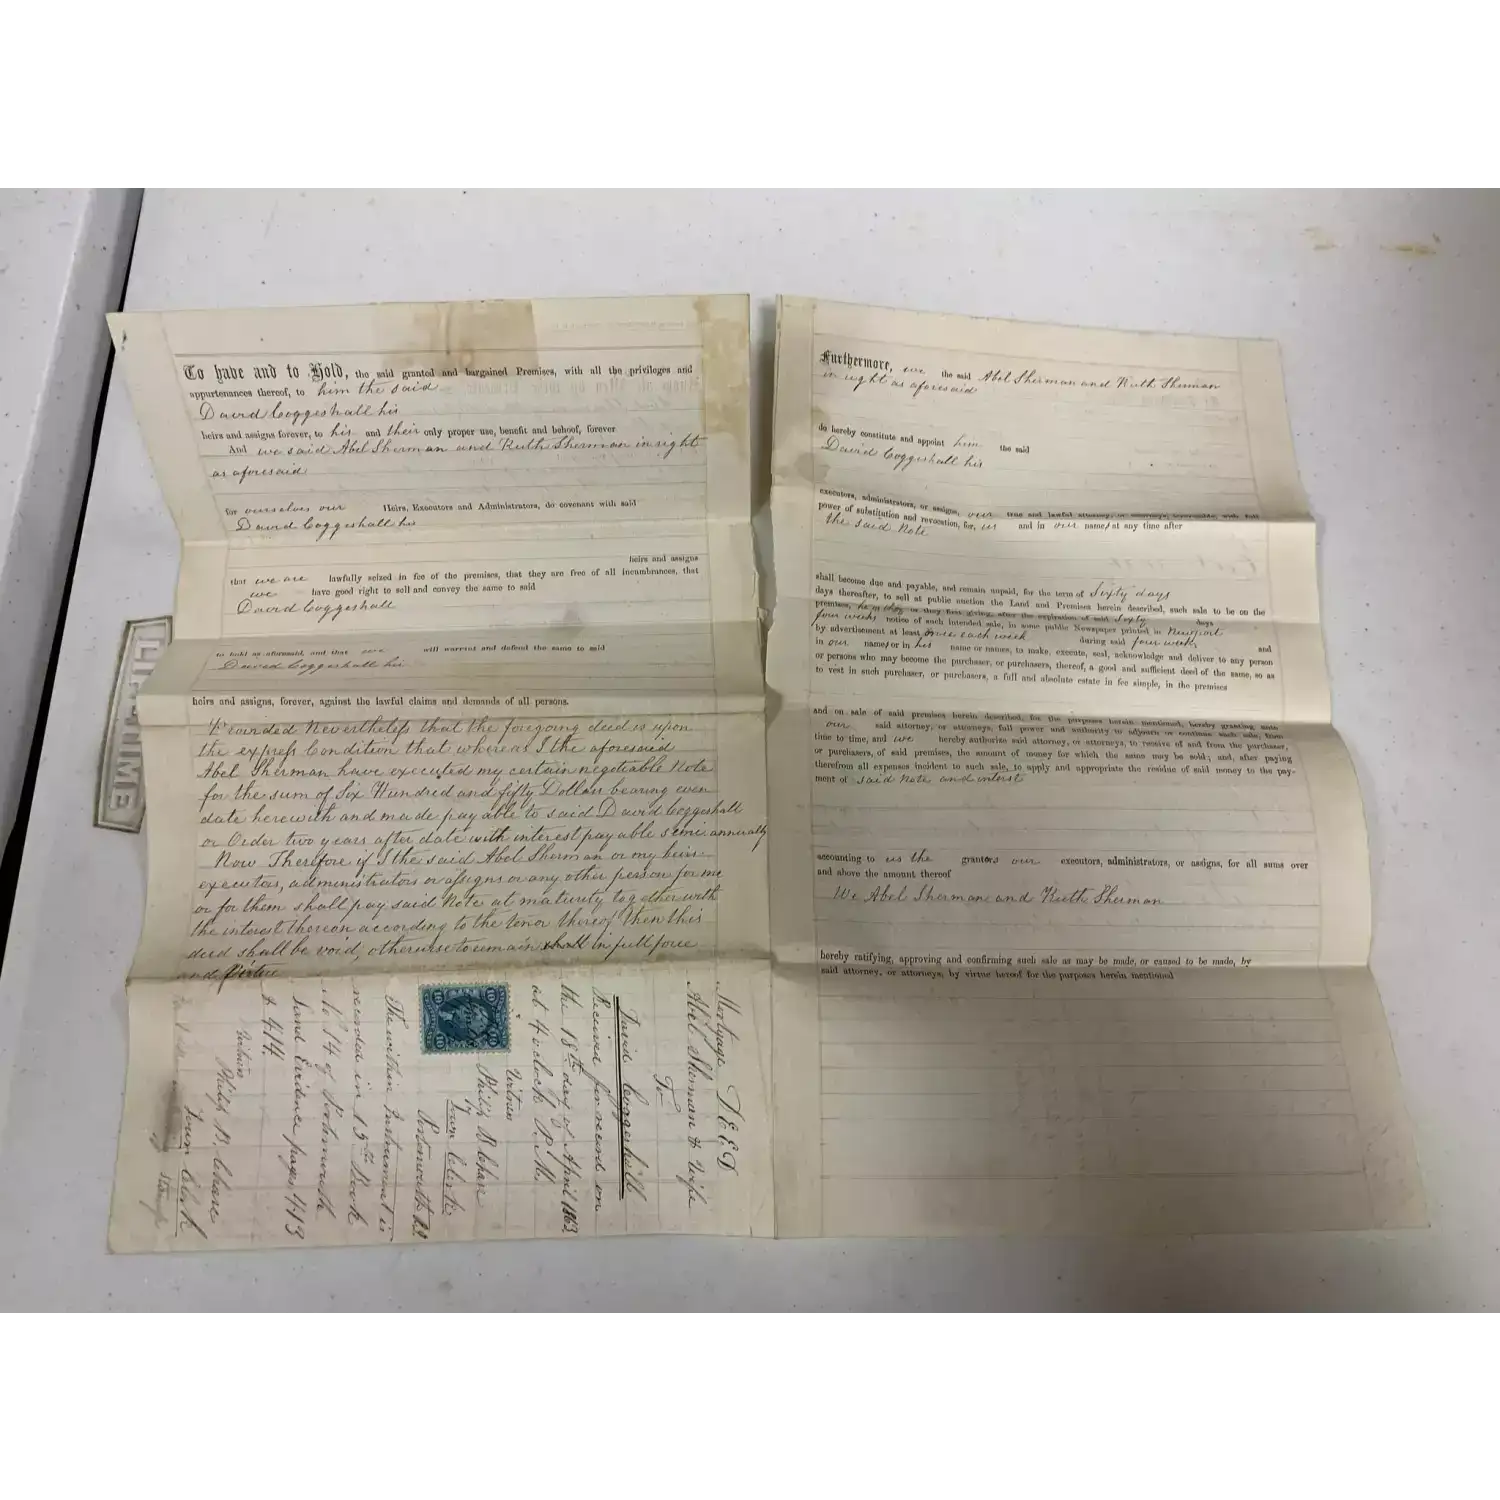 To have and to Hold, the said granted and bargained Premises, with all the privileges and
appurtenances thereof, to him the said
David Coggeshall his
heirs and assigns forever, to his and their only proper use, benefit and behoof, forever
And we said Abel Sherman and Ruth Sherman in right
as aforesaid
for ourselves our Heirs, Executors and Administrators, do covenant with said
David Coggeshall his
heirs and assigns
that we are lawfully seized in fee of the premises, that they are free of all incumbrances, that
we have good right to sell and convey the same to said
David Coggeshall
to hold as aforesaid, and that we will warrant and defend the same to said
David Coggeshall his
heirs and assigns, forever, against the lawful claims and demands of all persons.
Provided Nevertheless that the foregoing deed is upon
the express Condition that whereas I the aforesaid
Abel Sherman have executed my certain negotiable Note
for the sum of Six Hundred and fifty Dollars bearing even
date herewith and made payable to said David Coggeshall
or Order two years after date with interest payable semi annually
Now Therefore if I the said Abel Sherman or my heirs
executors, administrators or assigns or any other person for me
or for them shall pay said Note at maturity together with
the interest thereon according to the tenor thereof Then this
deed shall be void, otherwise to remain in full force
and virtue
Mortgage DEED
Abel Sherman & Wife
To
David Coggeshall
Received for record on
the 18th day of April 1863
at 4 o'clock P.M.
Witness
Philip B. Chase
Town Clerk
of
Portsmouth R.I.
The within Instrument is
recorded in 15th Book
No 14 of Portsmouth
Land Evidence pages 413
& 414.
Witness
Philip B. Chase
Town Clerk
stamp
10
10
Furthermore, we the said Abel Sherman and Ruth Sherman
in right as aforesaid
do hereby constitute and appoint him the said
David Coggeshall his
executors, administrators, or assigns, our true and lawful attorney, or attorneys, irrevocable, with full
power of substitution and revocation, for us and in our names at any time after
the said Note
shall become due and payable, and remain unpaid, for the term of Sixty days
days thereafter, to sell at public auction the Land and Premises herein described, such sale to be on the
premises, he or they first giving, after the expiration of said Sixty days
four weeks notice of such intended sale, in some public Newspaper printed in Newport
by advertisement at least once each week during said four weeks and
in our name or in his name or names, to make, execute, seal, acknowledge and deliver to any person
or persons who may become the purchaser, or purchasers, thereof, a good and sufficient deed of the same, so as
to vest in such purchaser, or purchasers, a full and absolute estate in fee simple, in the premises
and on sale of said premises herein described, for the purposes herein mentioned, hereby granting unto
our said attorney, or attorneys, full power and authority to adjourn or continue such sale, from
time to time, and we hereby authorize said attorney, or attorneys, to receive of and from the purchaser,
or purchasers, of said premises, the amount of money for which the same may be sold; and, after paying
therefrom all expenses incident to such sale, to apply and appropriate the residue of said money to the pay-
ment of said Note and interst
accounting to us the grantors our executors, administrators, or assigns, for all sums over
and above the amount thereof
We Abel Sherman and Ruth Sherman
hereby ratifying, approving and confirming such sale as may be made, or caused to be made, by
said attorney, or attorneys, by virtue hereof for the purposes herein mentioned
LIFETIME